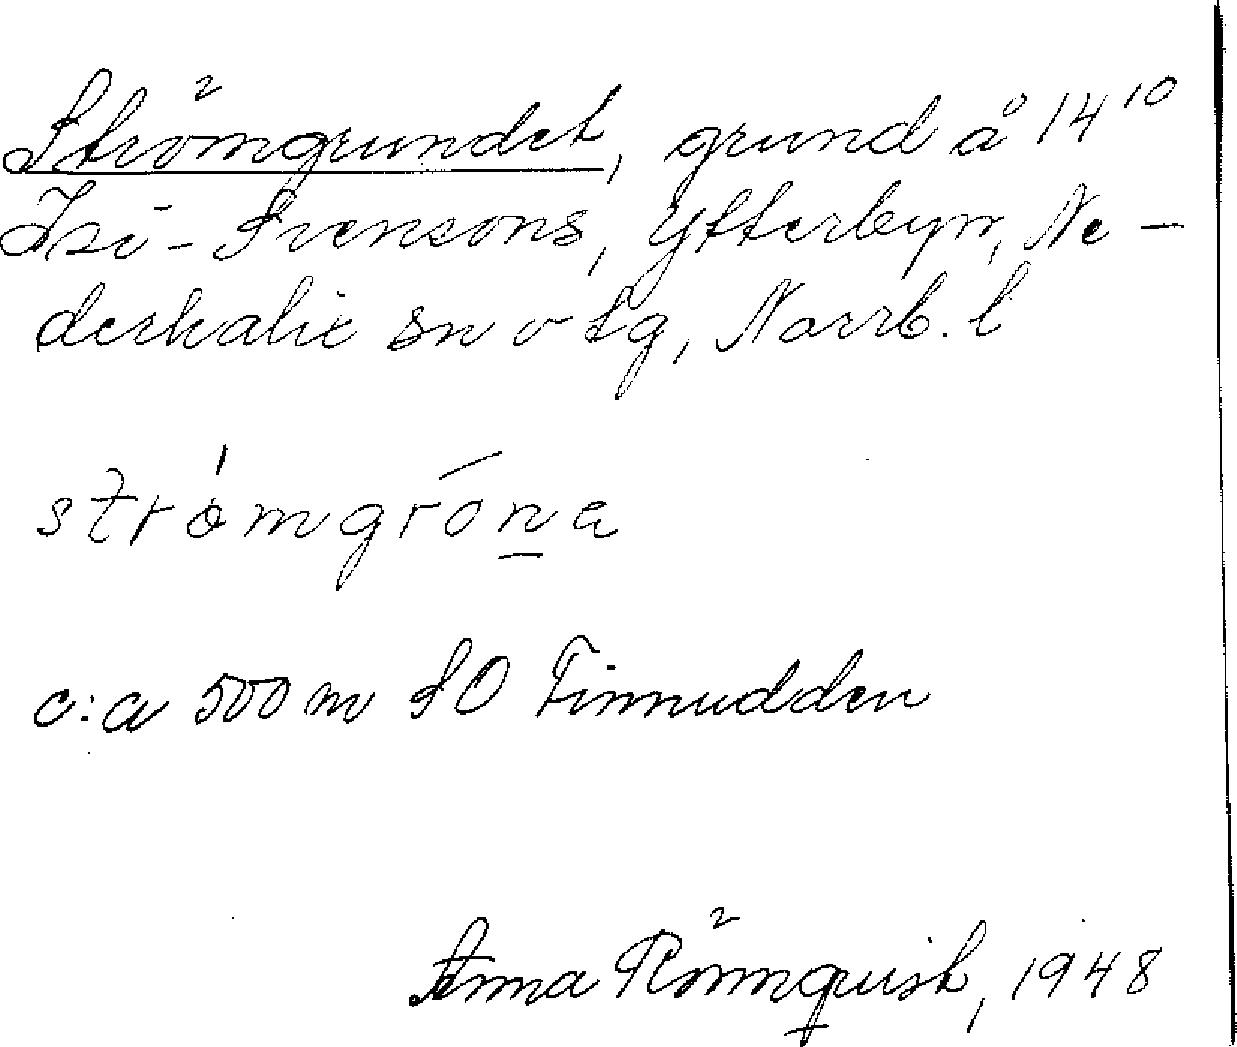 Strömgrundet, grund å 14¹⁰
Isö-Svensons, Ytterbyn, Ne-
derkalix sn o tg, Norrb. l
strómgróna
c:a 500 m SO Finnudden
Anna Rönnquist, 1948